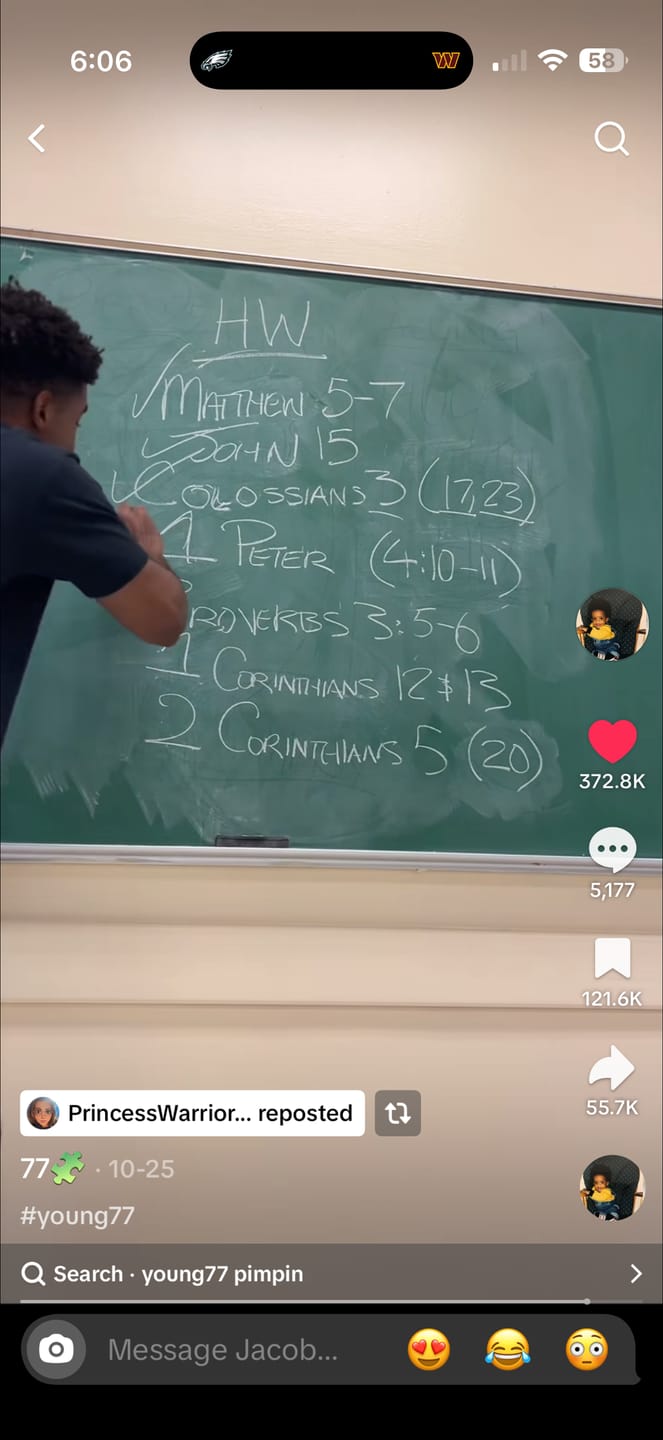 6:06
58
HW
MATTHEW 5-7
JOHN 15
COLOSSIANS 3 (17,23)
1 PETER (4:10-11)
ROVERBS 3:5-6
1 CORINTHIANS 12 & 13
2 CORINTHIANS 5 (20)
372.8K
5,177
121.6K
55.7K
PrincessWarrior... reposted
77🧩 · 10-25
#young77
Search · young77 pimpin
Message Jacob...